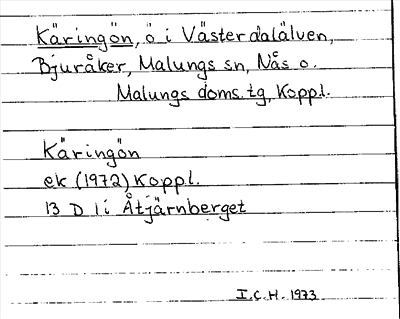 Käringön, ö i Västerdalälven,
Bjuråker, Malungs sn, Nås o.
Malungs doms. tg, Koppl.
Käringön
ek (1972) Koppl.
13 D 1 i Åtjärnberget
I.C.H. 1973